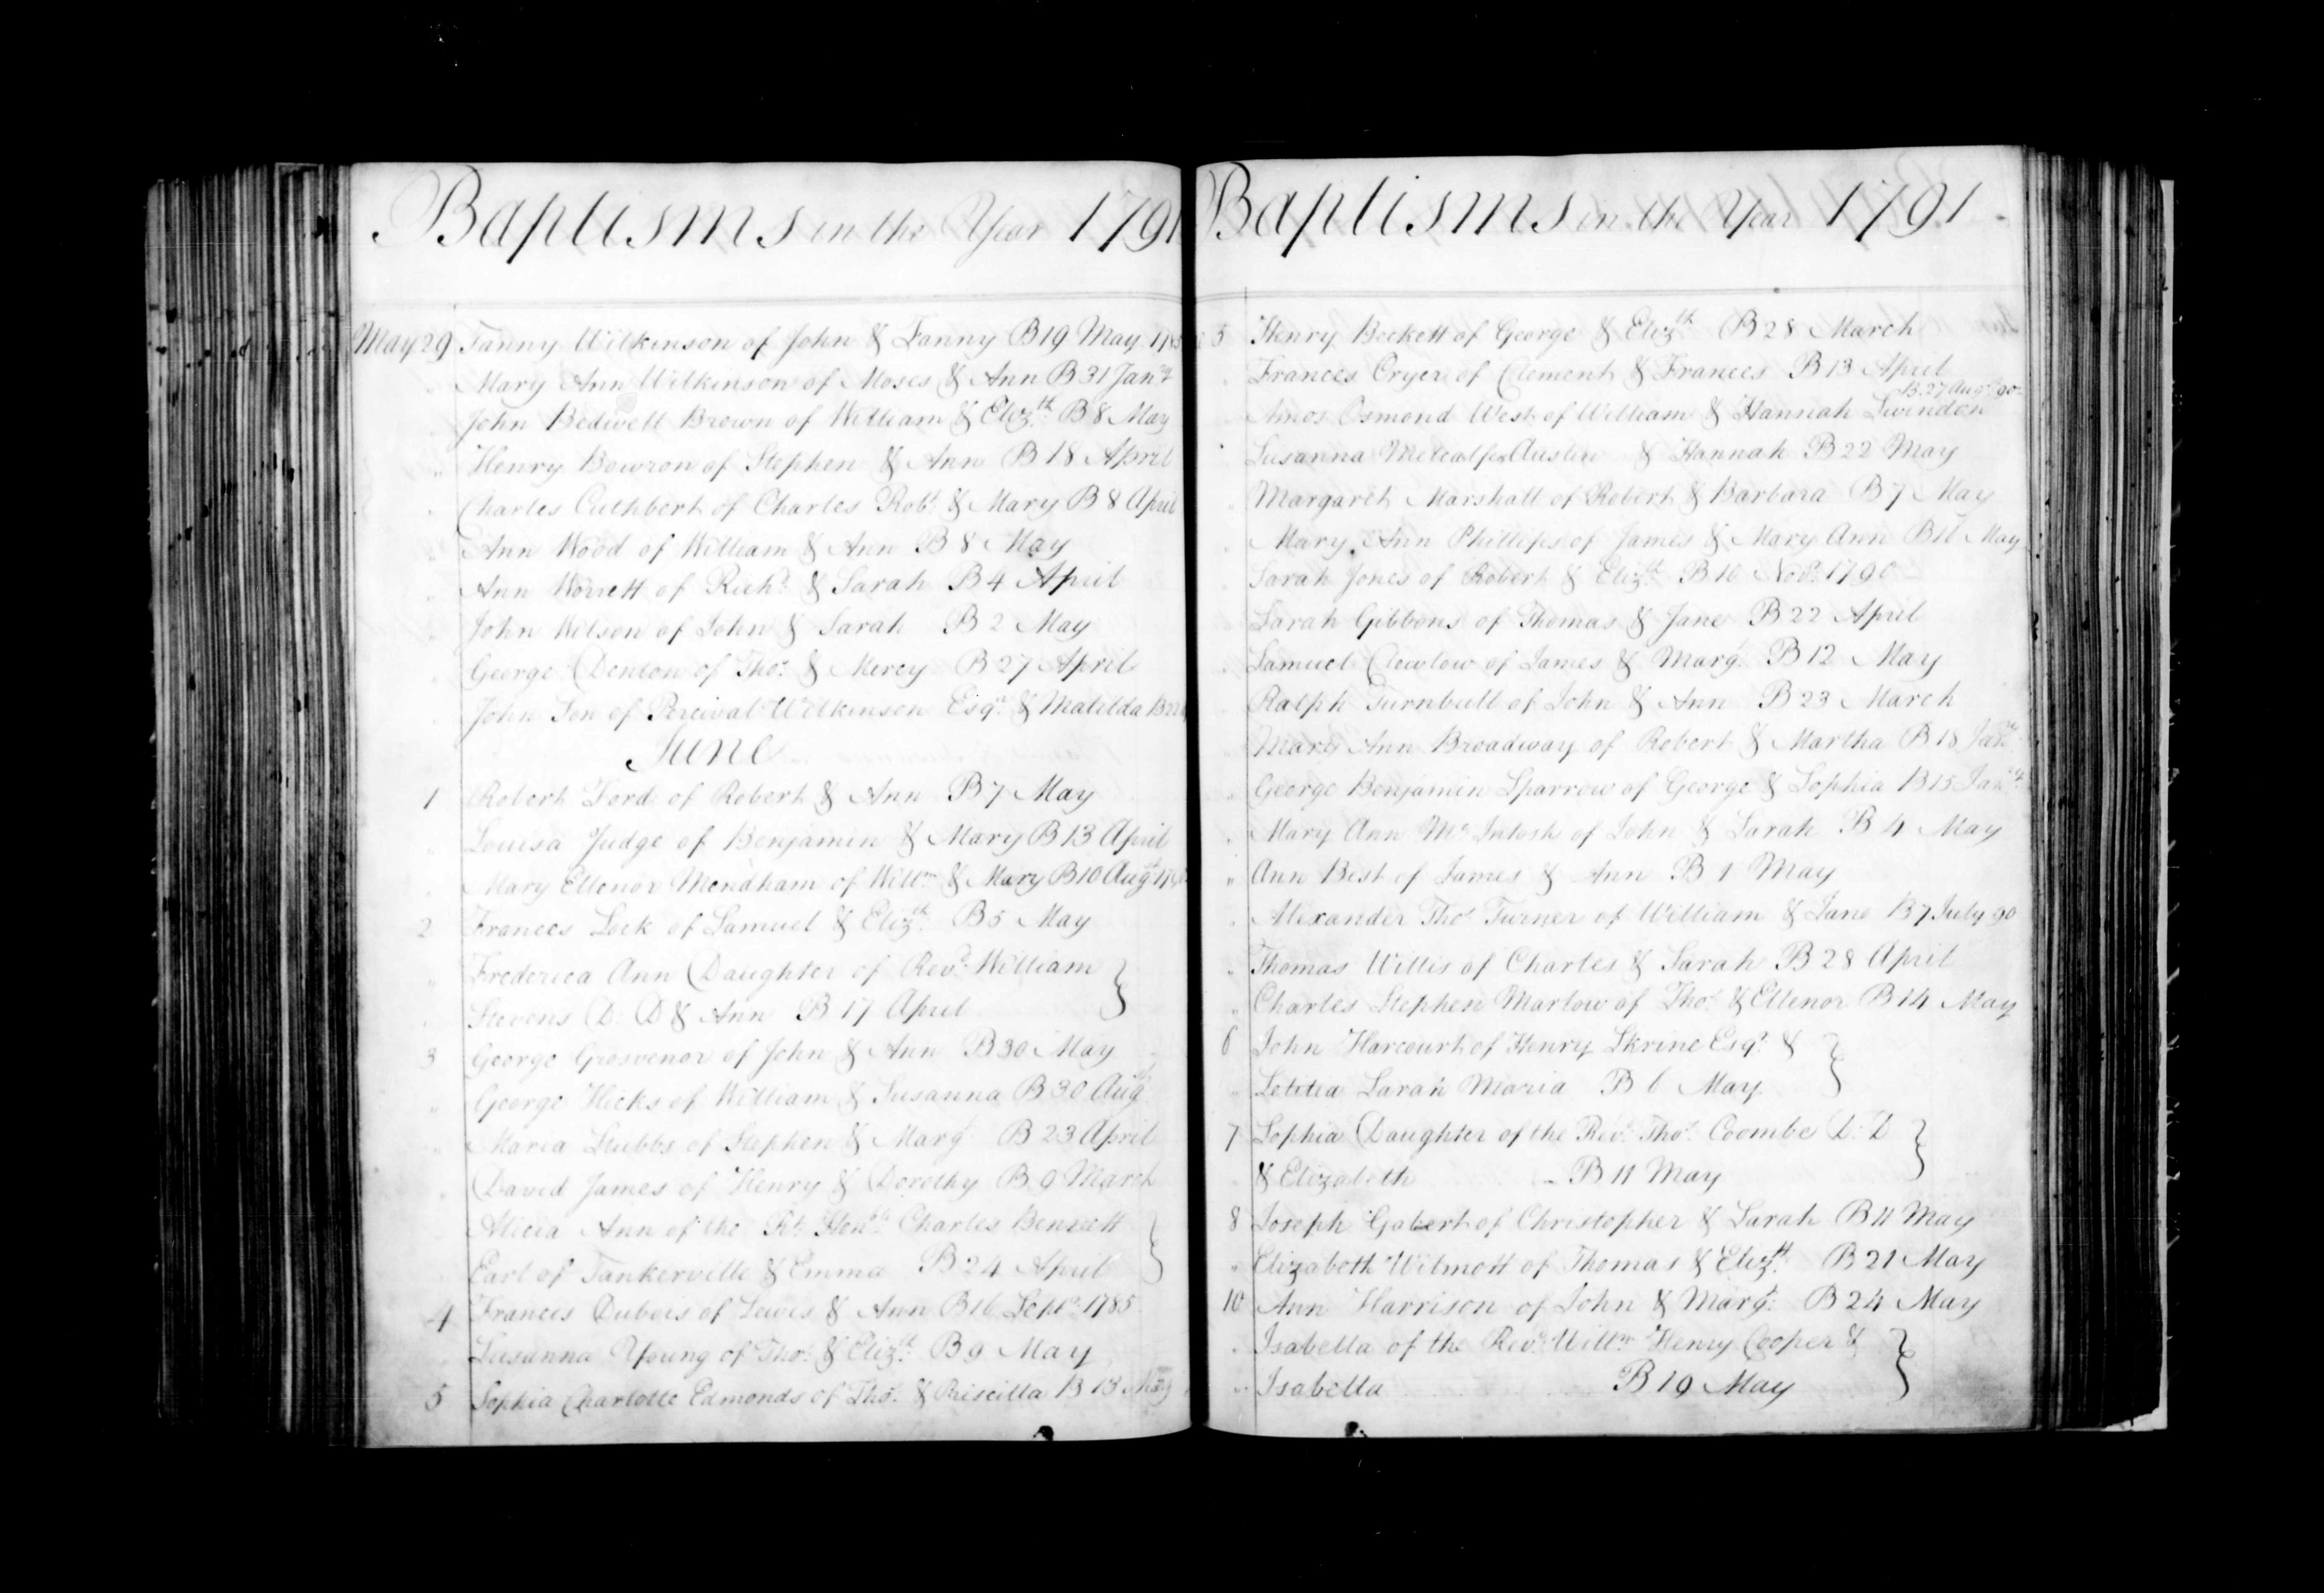 Baptisms in the Year 1791
May 29 Fanny Wilkinson of John & Fanny B 19 May 1785
" Mary Ann Wilkinson of Moses & Ann B 31 Jany
" John Bedwell Brown of William & Elizth B 8 May
" Henry Bowron of Stephen & Ann B 18 April
" Charles Cuthbert of Charles Robt & Mary B 8 April
" Ann Wood of William & Ann B 8 May
" Ann Worrett of Richd & Sarah B 4 April
" John Wilson of John & Sarah B 2 May
" George Denton of Thos & Mercy B 27 April
John Son of Percival Wilkinson Esqr & Matilda B 22
June
1 Robert Ford of Robert & Ann B 7 May
" Louisa Judge of Benjamin & Mary B 13 April
" Mary Ellenor Mendham of Willm & Mary B 10 Augt
2 Frances Lock of Samuel & Elizth B 5 May
" Frederica Ann Daughter of Revd William
" Stevens D: D & Ann B 17 April
3 George Grosvenor of John & Ann B 30 May
" George Hicks of William & Susanna B 30 Augt
" Maria Stubbs of Stephen & Margt B 23 April
" David James of Henry & Dorothy B 9 March
Alicia Ann of the Rt Honble Charles Bennett
Earl of Tankerville & Emma B 24 April
4 Frances Dubois of Lewis & Ann B 16 Septr 1785
Susanna Young of Thos & Elizth B 9 May
5 Sophia Charlotte Edmonds of Thos & Priscilla B 13 May
Baptisms in the Year 1791
5 Henry Beckett of George & Elizth B 28 March
" Frances Cryer of Clement & Frances B 13 April
B. 27 Augt 90
Amos Osmond West of William & Hannah Swinden
" Susanna Metcalfe Austin & Hannah B 22 May
" Margaret Marshall of Robert & Barbara B 7 May
" Mary Ann Phillips of James & Mary Ann B 11 May
Sarah Jones of Robert & Elizth B 16 Novr 1790
Sarah Gibbons of Thomas & Jane B 22 April
" Samuel Clewlow of James & Margt B 12 May
Ralph Turnbull of John & Ann B 23 March
" Mary Ann Broadway of Robert & Martha B 18 Jany
" George Benjamin Sparrow of George & Sophia B 15 Jany
" Mary Ann Mc Intosh of John & Sarah B 4 May
" Ann Best of James & Ann B 1 May
" Alexander Thos Turner of William & Jane B 7 July 90
" Thomas Willis of Charles & Sarah B 28 April
" Charles Stephen Marlow of Thos & Ellenor B 14 May
6 John Harcourt of Henry Skrine Esqr &
" Letitia Sarah Maria B 6 May
7 Sophia Daughter of the Revd Thos Coombe D: D
& Elizabeth – B 11 May
8 Joseph Gabert of Christopher & Sarah B 11 May
" Elizabeth Wilmott of Thomas & Elizth B 21 May
10 Ann Harrison of John & Margt B 24 May
" Isabella of the Revd Willm Henry Cooper &
" Isabella B 19 May